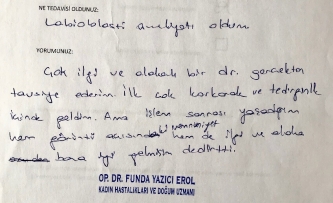 NE TEDAVİSİ OLDUNUZ:
Labioblasti ameliyatı oldum
YORUMUNUZ:
Çok ilgi ve alakalı bir dr. gerçekten
tavsiye ederim. İlk çok korkarak ve tedirginlik
içinde geldim. Ama işlem sonrası yaşadığım
memnuniyet
hem görüntü açısından hem de ilgi ve alaka
bana iyi gelmişim dedirtti.
OP. DR. FUNDA YAZICI EROL
KADIN HASTALIKLARI VE DOĞUM UZMANI